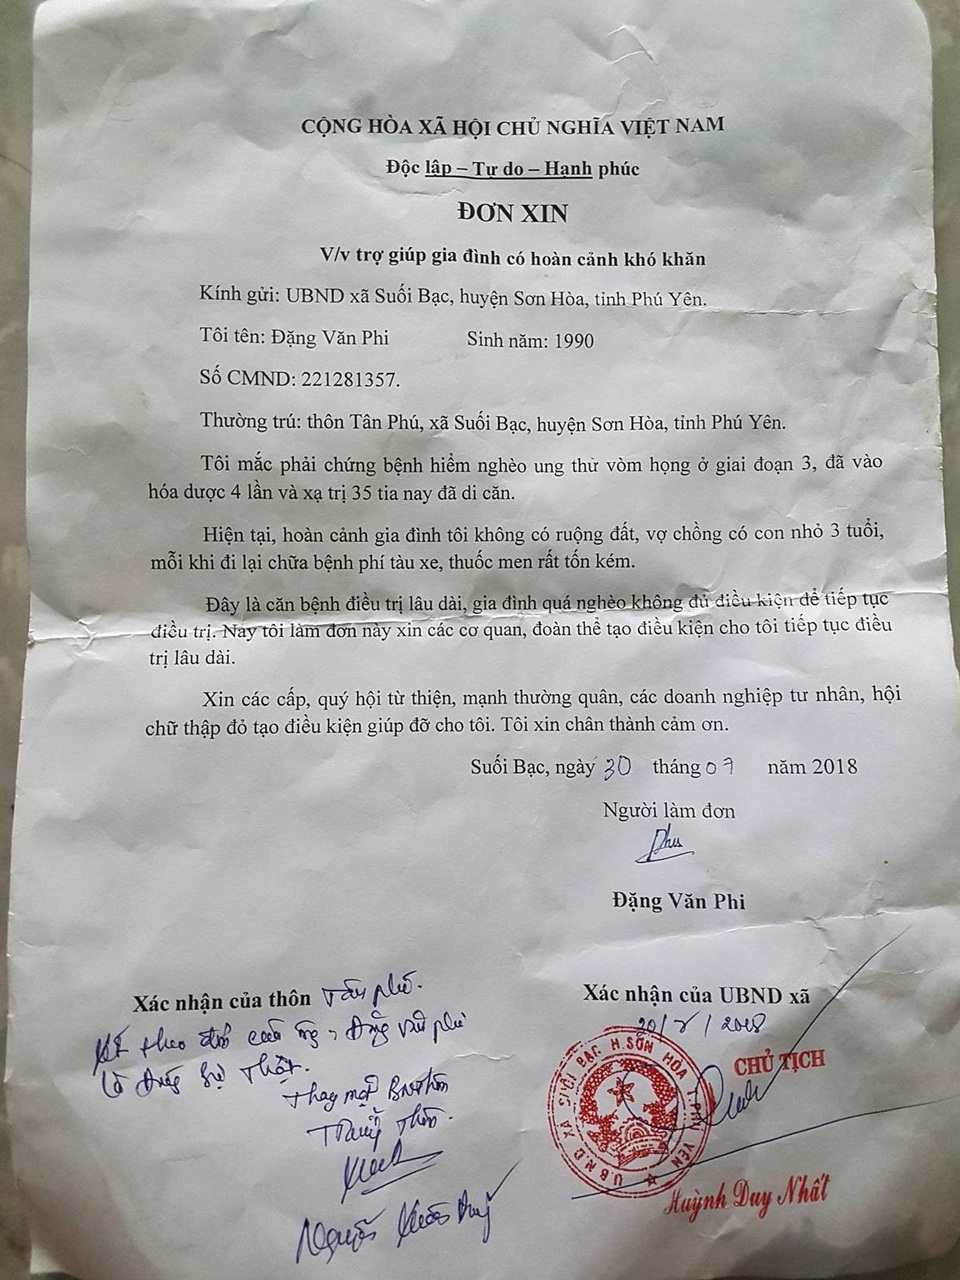 CỘNG HÒA XÃ HỘI CHỦ NGHĨA VIỆT NAM
Độc lập – Tự do – Hạnh phúc
ĐƠN XIN
V/v trợ giúp gia đình có hoàn cảnh khó khăn
Kính gửi: UBND xã Suối Bạc, huyện Sơn Hòa, tỉnh Phú Yên.
Tôi tên: Đặng Văn Phi Sinh năm: 1990
Số CMND: 221281357.
Thường trú: thôn Tân Phú, xã Suối Bạc, huyện Sơn Hòa, tỉnh Phú Yên.
Tôi mắc phải chứng bệnh hiểm nghèo ung thư vòm họng ở giai đoạn 3, đã vào
hóa dược 4 lần và xạ trị 35 tia nay đã di căn.
Hiện tại, hoàn cảnh gia đình tôi không có ruộng đất, vợ chồng có con nhỏ 3 tuổi,
mỗi khi đi lại chữa bệnh phí tàu xe, thuốc men rất tốn kém.
Đây là căn bệnh điều trị lâu dài, gia đình quá nghèo không đủ điều kiện để tiếp tục
điều trị. Nay tôi làm đơn này xin các cơ quan, đoàn thể tạo điều kiện cho tôi tiếp tục điều
trị lâu dài.
Xin các cấp, quý hội từ thiện, mạnh thường quân, các doanh nghiệp tư nhân, hội
chữ thập đỏ tạo điều kiện giúp đỡ cho tôi. Tôi xin chân thành cảm ơn.
Suối Bạc, ngày 30 tháng 07 năm 2018
Người làm đơn
Đặng Văn Phi
Xác nhận của thôn Tân phú.
theo đơn của ông, Đặng văn phi
là đúng sự thật.
Thay mặt BNthôn
Trưởng Thôn.
Nguyễn Xuân Duy
Xác nhận của UBND xã
2018
CHỦ TỊCH
U.B.N.D. XÃ SUỐI BẠC. H. SƠN HÒA T. PHÚ YÊN
Huỳnh Duy Nhất